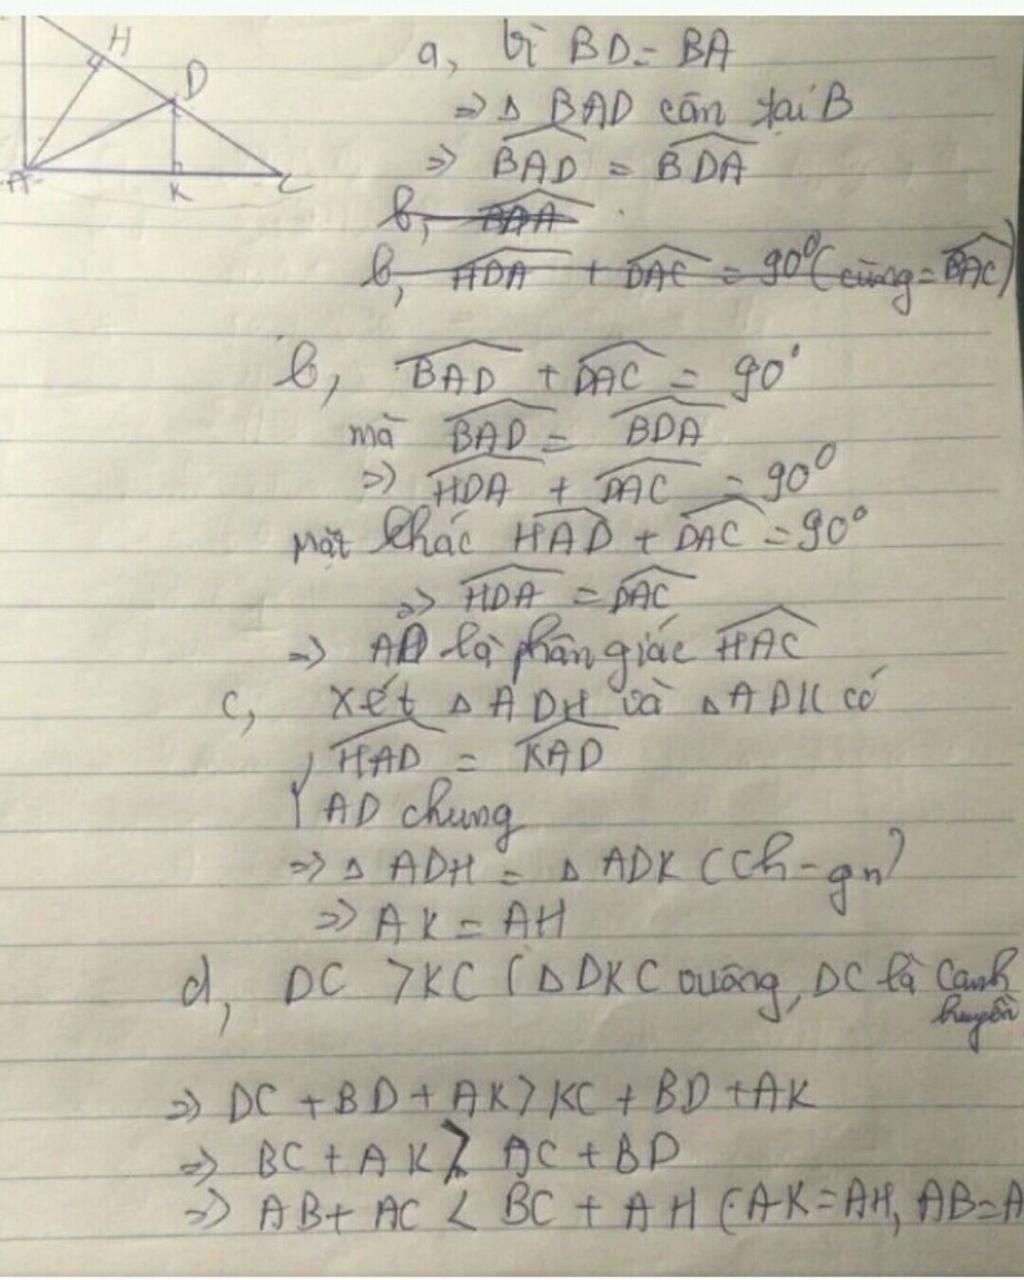 H
D
A
K
C
a, Vì BD = BA
=> Δ BAD cân tại B
=> BAD = BDA
b, BDA
b, HDA + DAC = 90° (cùng = BAC)
b, BAD + DAC = 90°
mà BAD = BDA
=> HDA + DAC = 90°
Mặt khác HAD + DAC = 90°
=> HDA = DAC
=> AD là phân giác HAC
c, Xét Δ ADH và Δ ADK có
{ HAD = KAD
AD chung
=> Δ ADH = Δ ADK (ch-gn)
=> AK = AH
d, DC > KC (Δ DKC vuông, DC là cạnh
huyền
=> DC + BD + AK > KC + BD + AK
=> BC + AK > AC + BD
=> AB + AC < BC + AH (AK = AH, AB = A